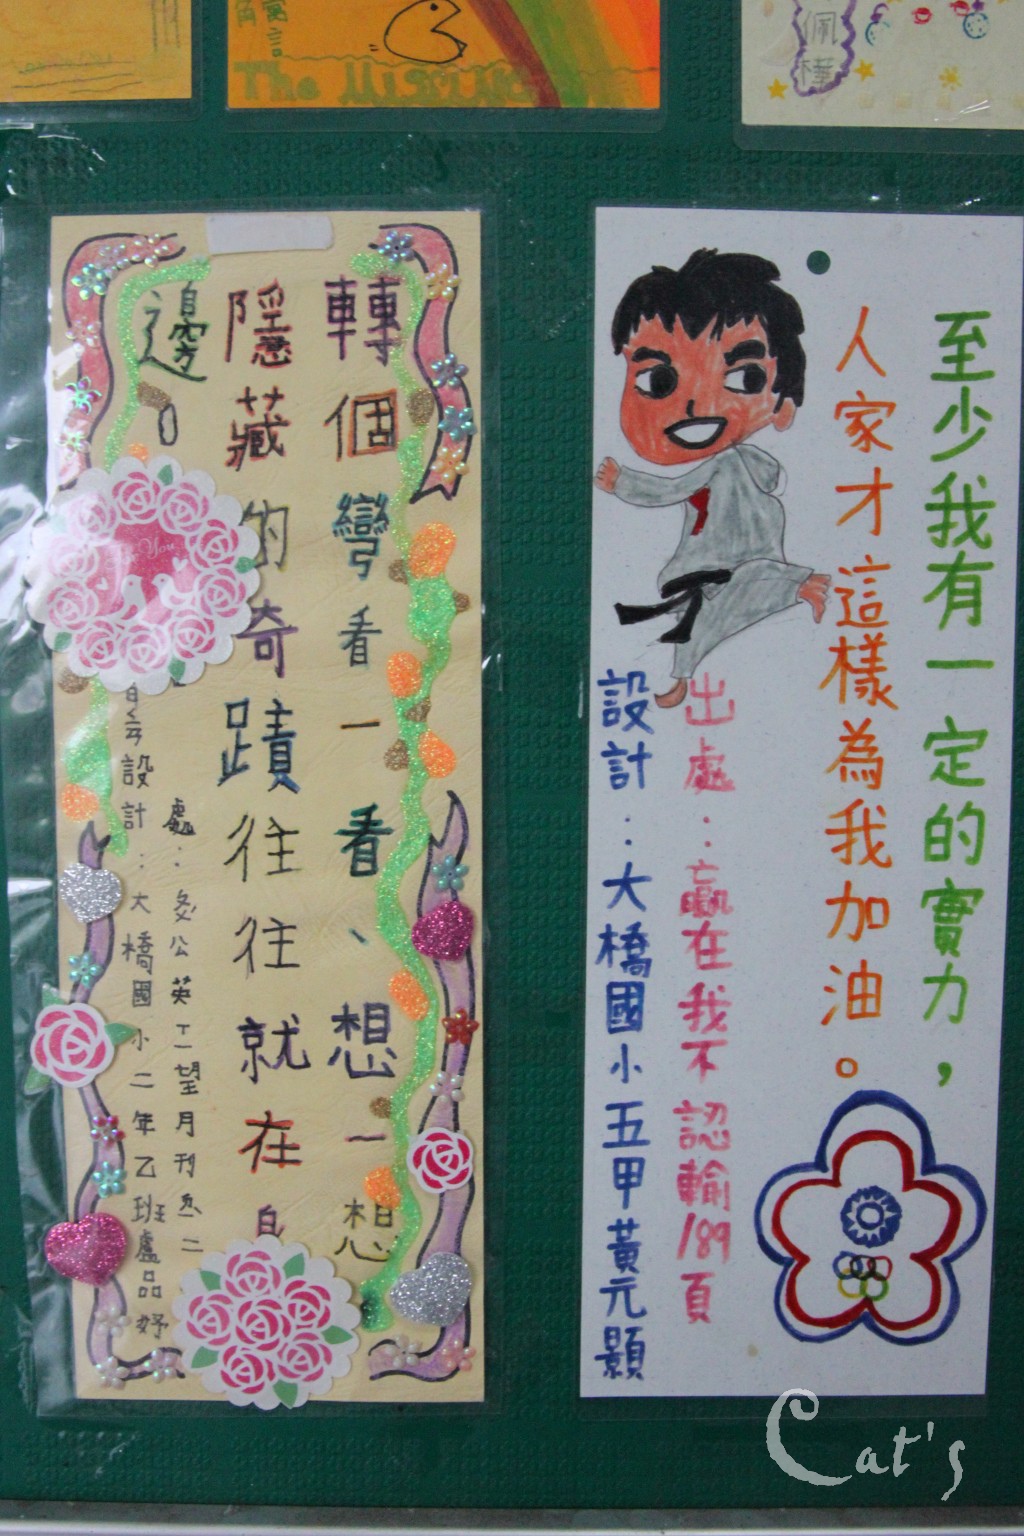 寓言
The Missing
佩
樺
至少我有一定的實力，
人家才這樣為我加油。
出處：贏在我不認輸189頁
設計：大橋國小五甲黃元顥
轉個彎看一看、想一想
隱藏的奇蹟往往就在身
邊。
處：
公英
望月刊
二
設計：大橋國小二年乙班盧品妤
You
Cat's